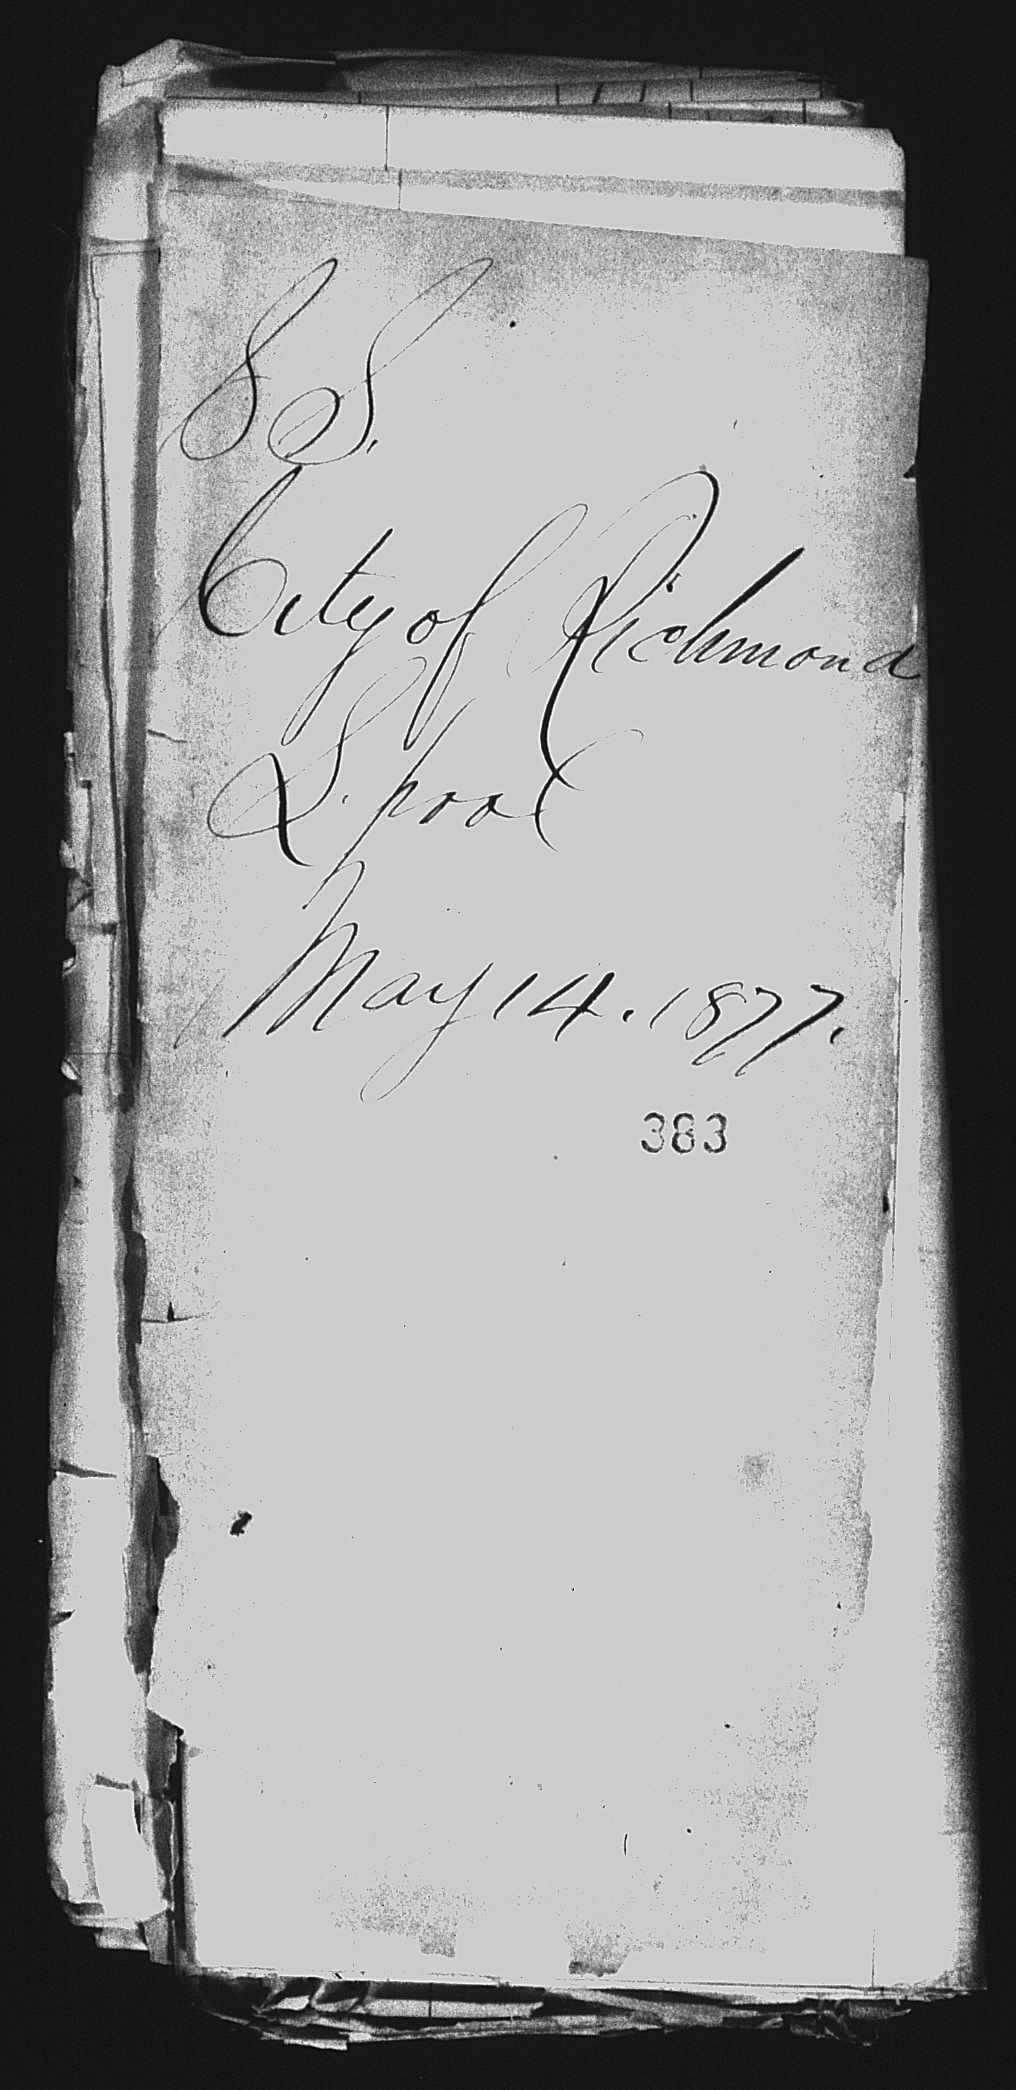 S S.
City of Richmond
L. pool
May 14. 1877.
383